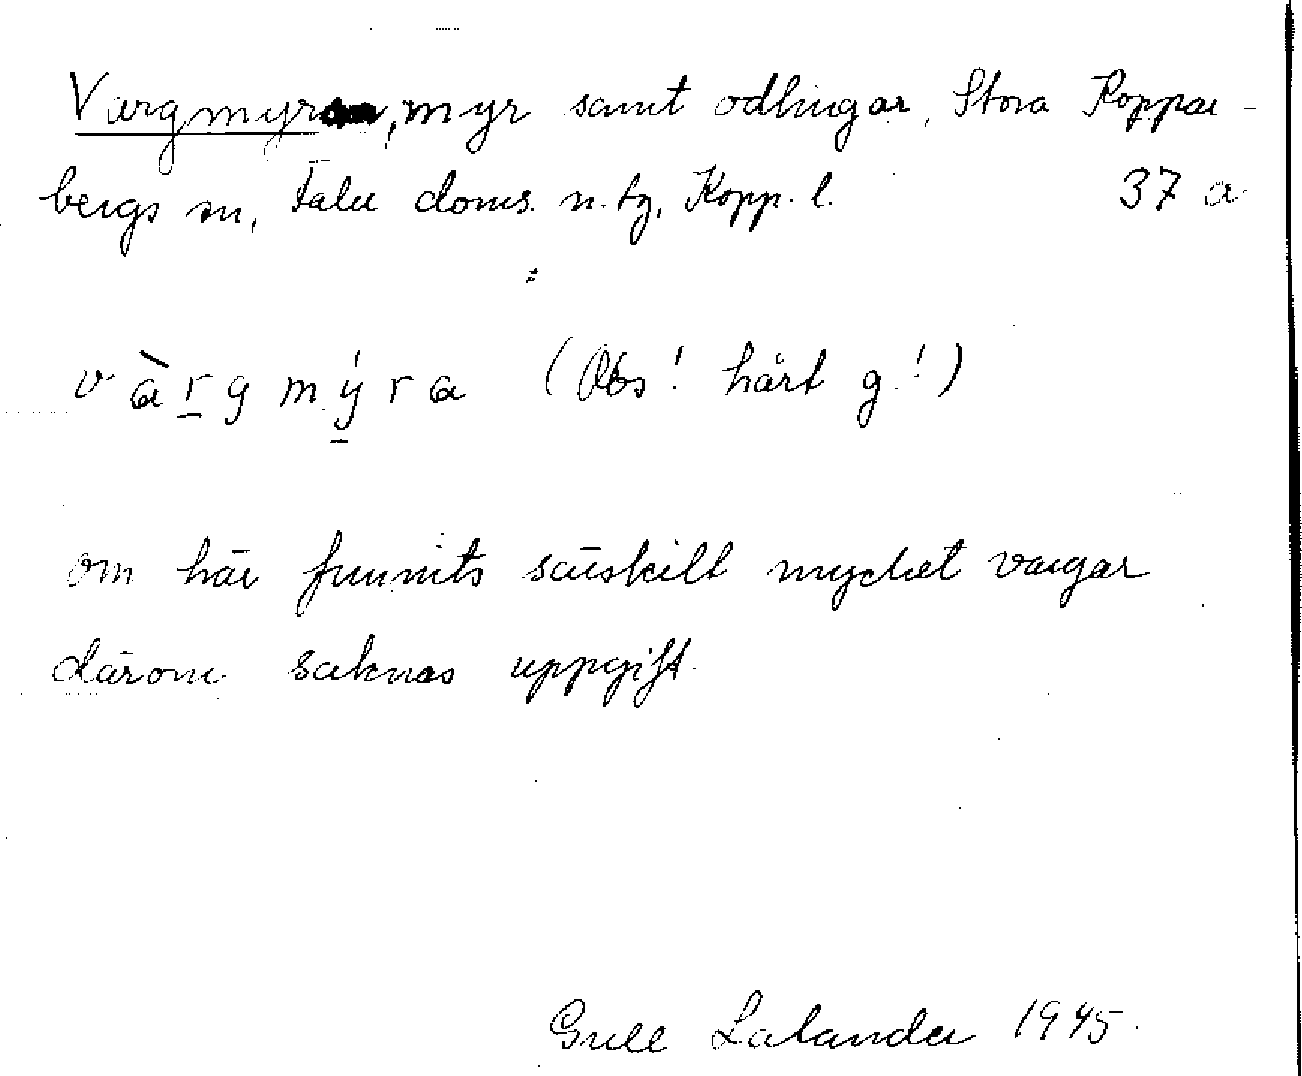 Vargmyran, myr samt odlingar, Stora Koppar-
bergs sn, Falu doms. n. tg, Kopp. l. 37 a
vàrgmýra (Obs! hårt g!)
om här funnits särskilt mycket vargar
därom saknas uppgift.
Gull Lalander 1945.